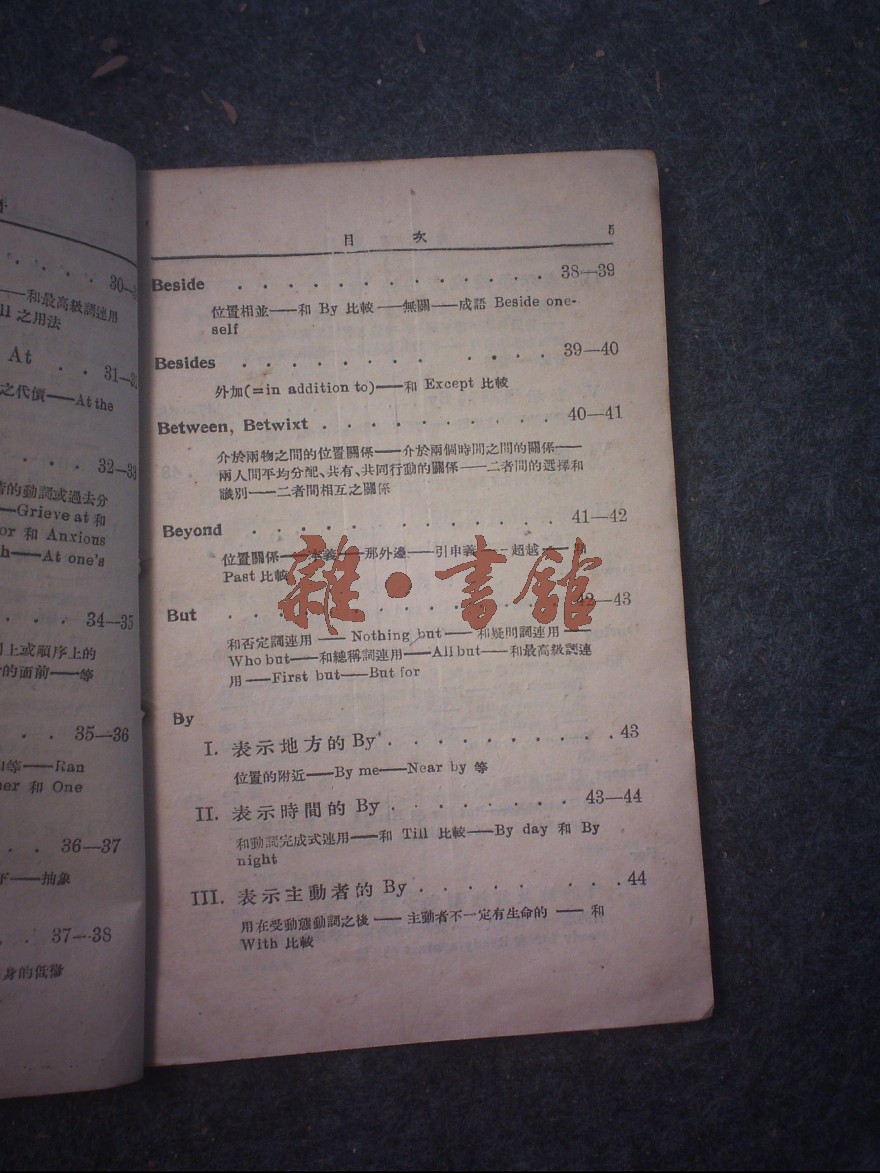 30—
——和最高級詞連用
ll 之用法
At
31—3
之代價——At the
32—33
的動詞或過去分
—Grieve at 和
or 和 Anxious
h——At one's
34—35
上或順序上的
的面前——等
35—36
等——Ran
her 和 One
36—37
下——抽象
37—38
身的低微
目 次 5
Beside 38—39
位置相並——和 By 比較——無關——成語 Beside one-
self
Besides 39—40
外加(=in addition to)——和 Except 比較
Between, Betwixt 40—41
介於兩物之間的位置關係——介於兩個時間之間的關係——
兩人間平均分配、共有、共同行動的關係——二者間的選擇和
識別——二者間相互之關係
Beyond 41—42
位置關係——本義——那外邊——引申義——超越——和
Past 比較
But 42—43
和否定詞連用——Nothing but——和疑問詞連用——
Who but——和總稱詞連用——All but——和最高級詞連
用——First but——But for
By
I. 表示地方的 By 43
位置的附近——By me——Near by 等
II. 表示時間的 By 43—44
和動詞完成式連用——和 Till 比較——By day 和 By
night
III. 表示主動者的 By 44
用在受動態動詞之後——主動者不一定有生命的——和
With 比較
雜·書館